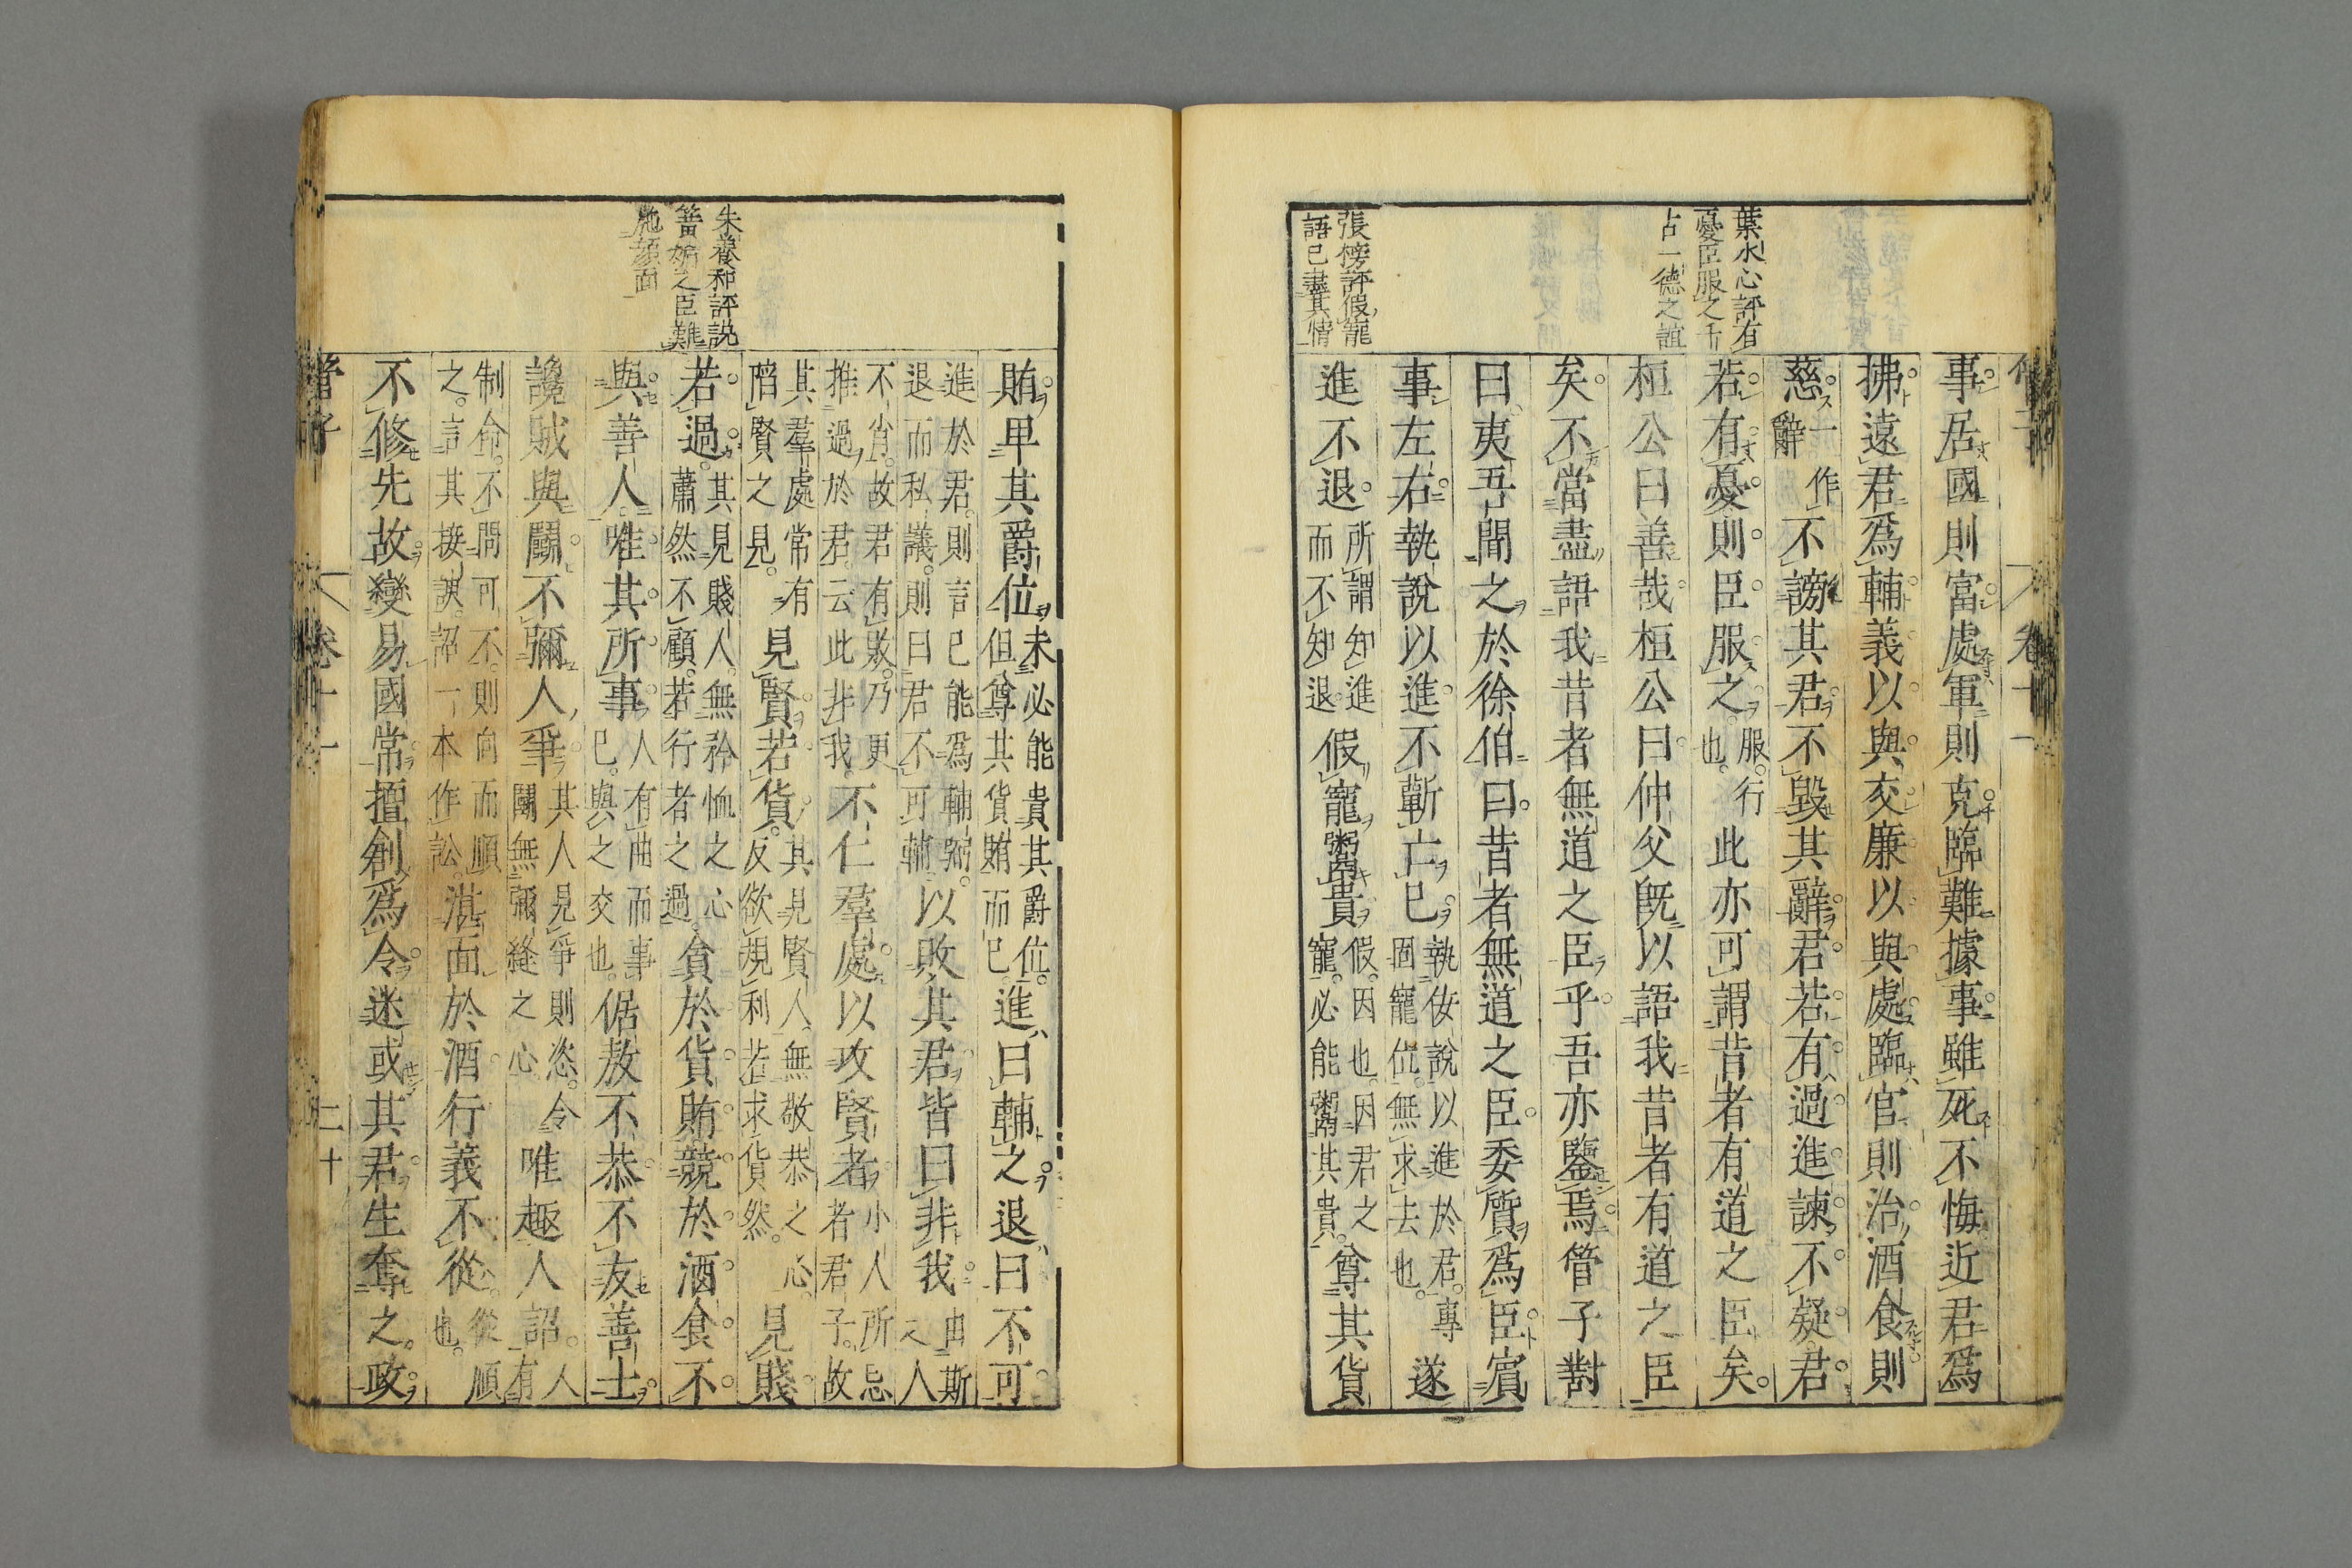 葉水心評有
憂臣服之千
占一德之誼
張榜評假寵
語已盡其情
事居國則富處軍則克臨難據事雖死不悔近君爲
拂遠君爲輔義以與交廉以與處臨官則治酒食則
慈一作辭不謗其君不毀其辭君若有過進諫不疑君
若有憂則臣服之服行也此亦可謂昔者有道之臣矣
桓公曰善哉桓公曰仲父旣以語我昔者有道之臣
矣不當盡語我昔者無道之臣乎吾亦鑒焉管子對
曰夷吾聞之於徐伯曰昔者無道之臣委質爲臣賓
事左右執說以進不蘄亡已執佞說以進於君專固寵位無求去也遂
進不退所謂知進而不知退假寵鬻貴假因也因君之寵必能鬻其貴尊其貨
卷十一
朱養和評說
簪媚之臣難
施顏面
賄卑其爵位未必能貴其爵位但尊其貨賄而已進曰輔之退曰不可
進於君則言已能爲輔弼退而私議則曰君不可輔以敗其君皆曰非我由斯人
不肖故君有敗乃更推過於君云此非我不仁羣處以攻賢者小人所忌者君子故
其羣處常有陷賢之見見賢若貨其見賢人無敬恭之心反欲規利若求貨然見賤
若過其見賤人無矜恤之心蕭然不顧若行者之過貪於貨賄競於酒食不
與善人唯其所事人有曲而事已與之交也倨敖不恭不友善士
讒賊與鬭不彌人爭其人見爭則恣令鬭無彌縫之心唯趣人詔人有
制命不問可不則向而順之言其接諛詔一本作訟湛湎於酒行義不從從順也
不修先故變易國常擅創爲令迷或其君生奪之政
管子
卷十一
二十